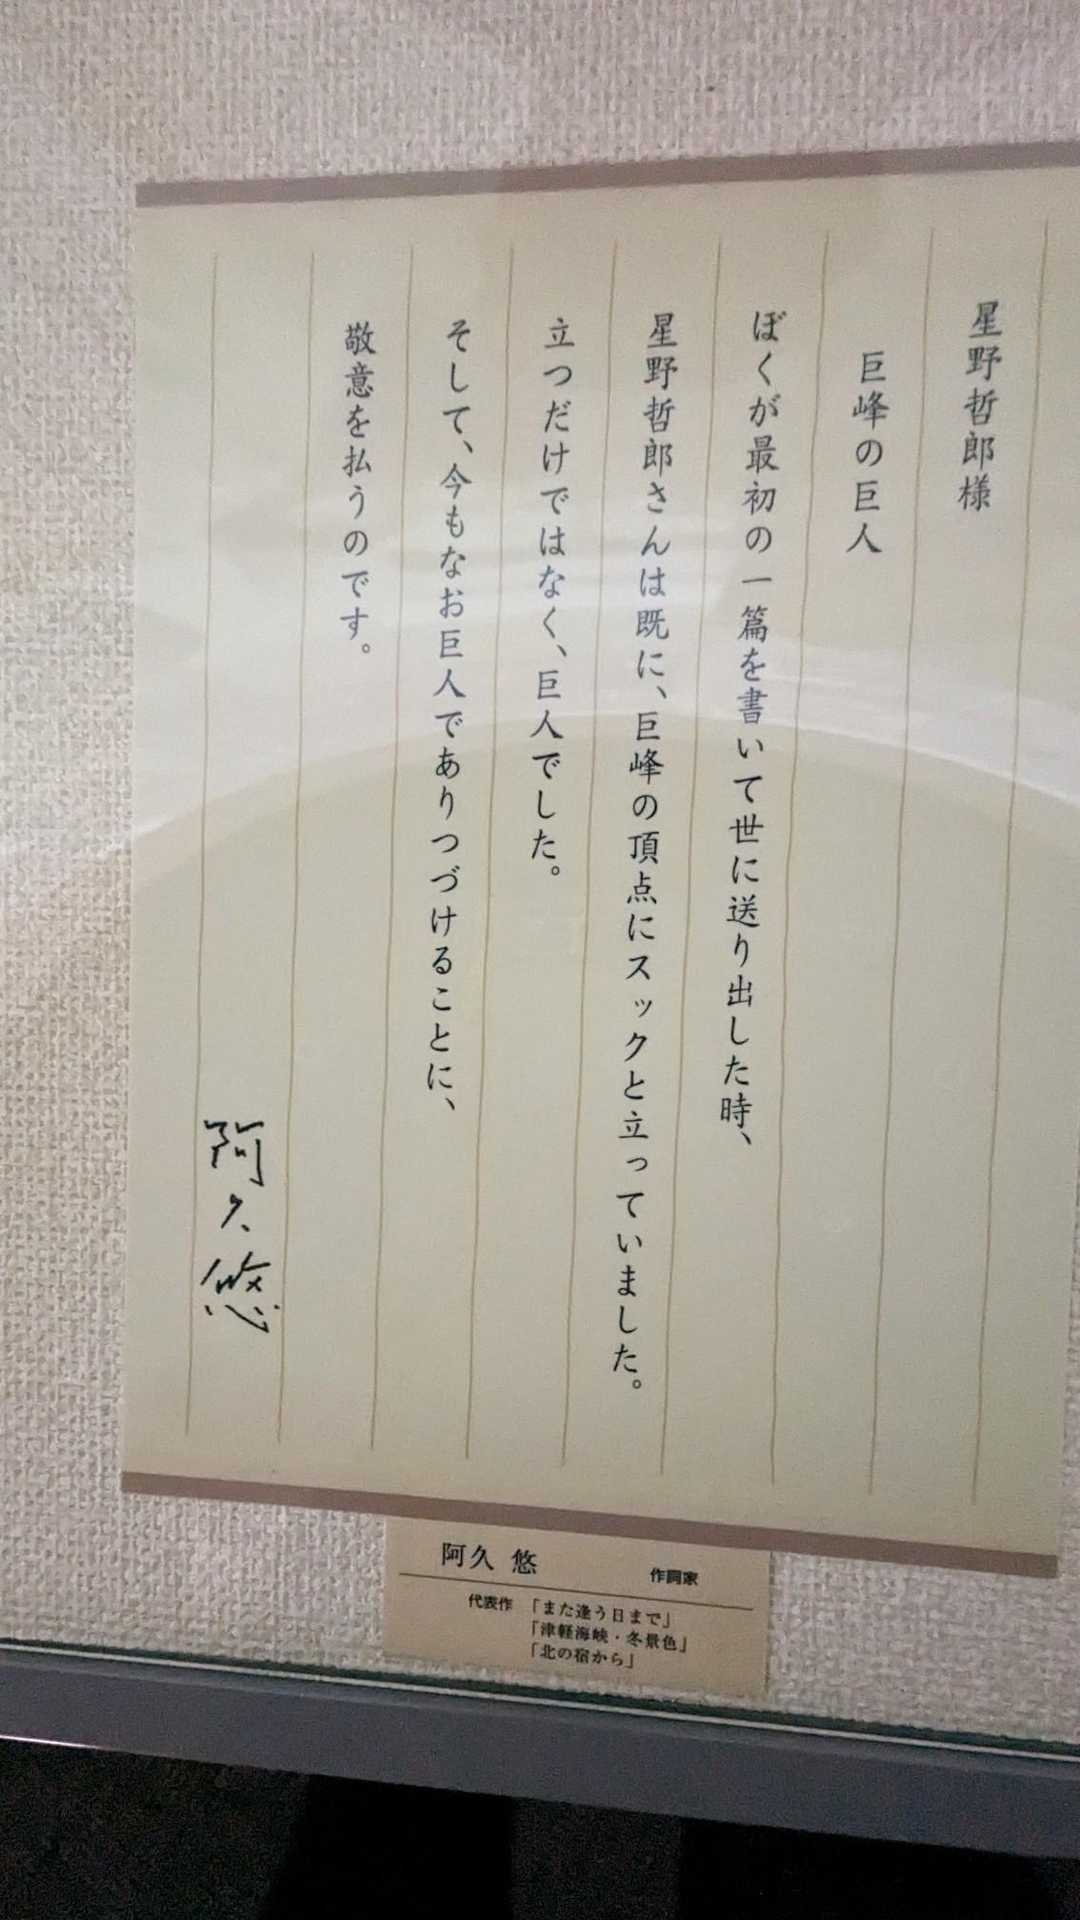 星野哲郎様
巨峰の巨人
ぼくが最初の一篇を書いて世に送り出した時、
星野哲郎さんは既に、巨峰の頂点にスックと立っていました。
立つだけではなく、巨人でした。
そして、今もなお巨人でありつづけることに、
敬意を払うのです。
阿久悠
阿久 悠 作詞家
代表作 「また逢う日まで」
「津軽海峡・冬景色」
「北の宿から」